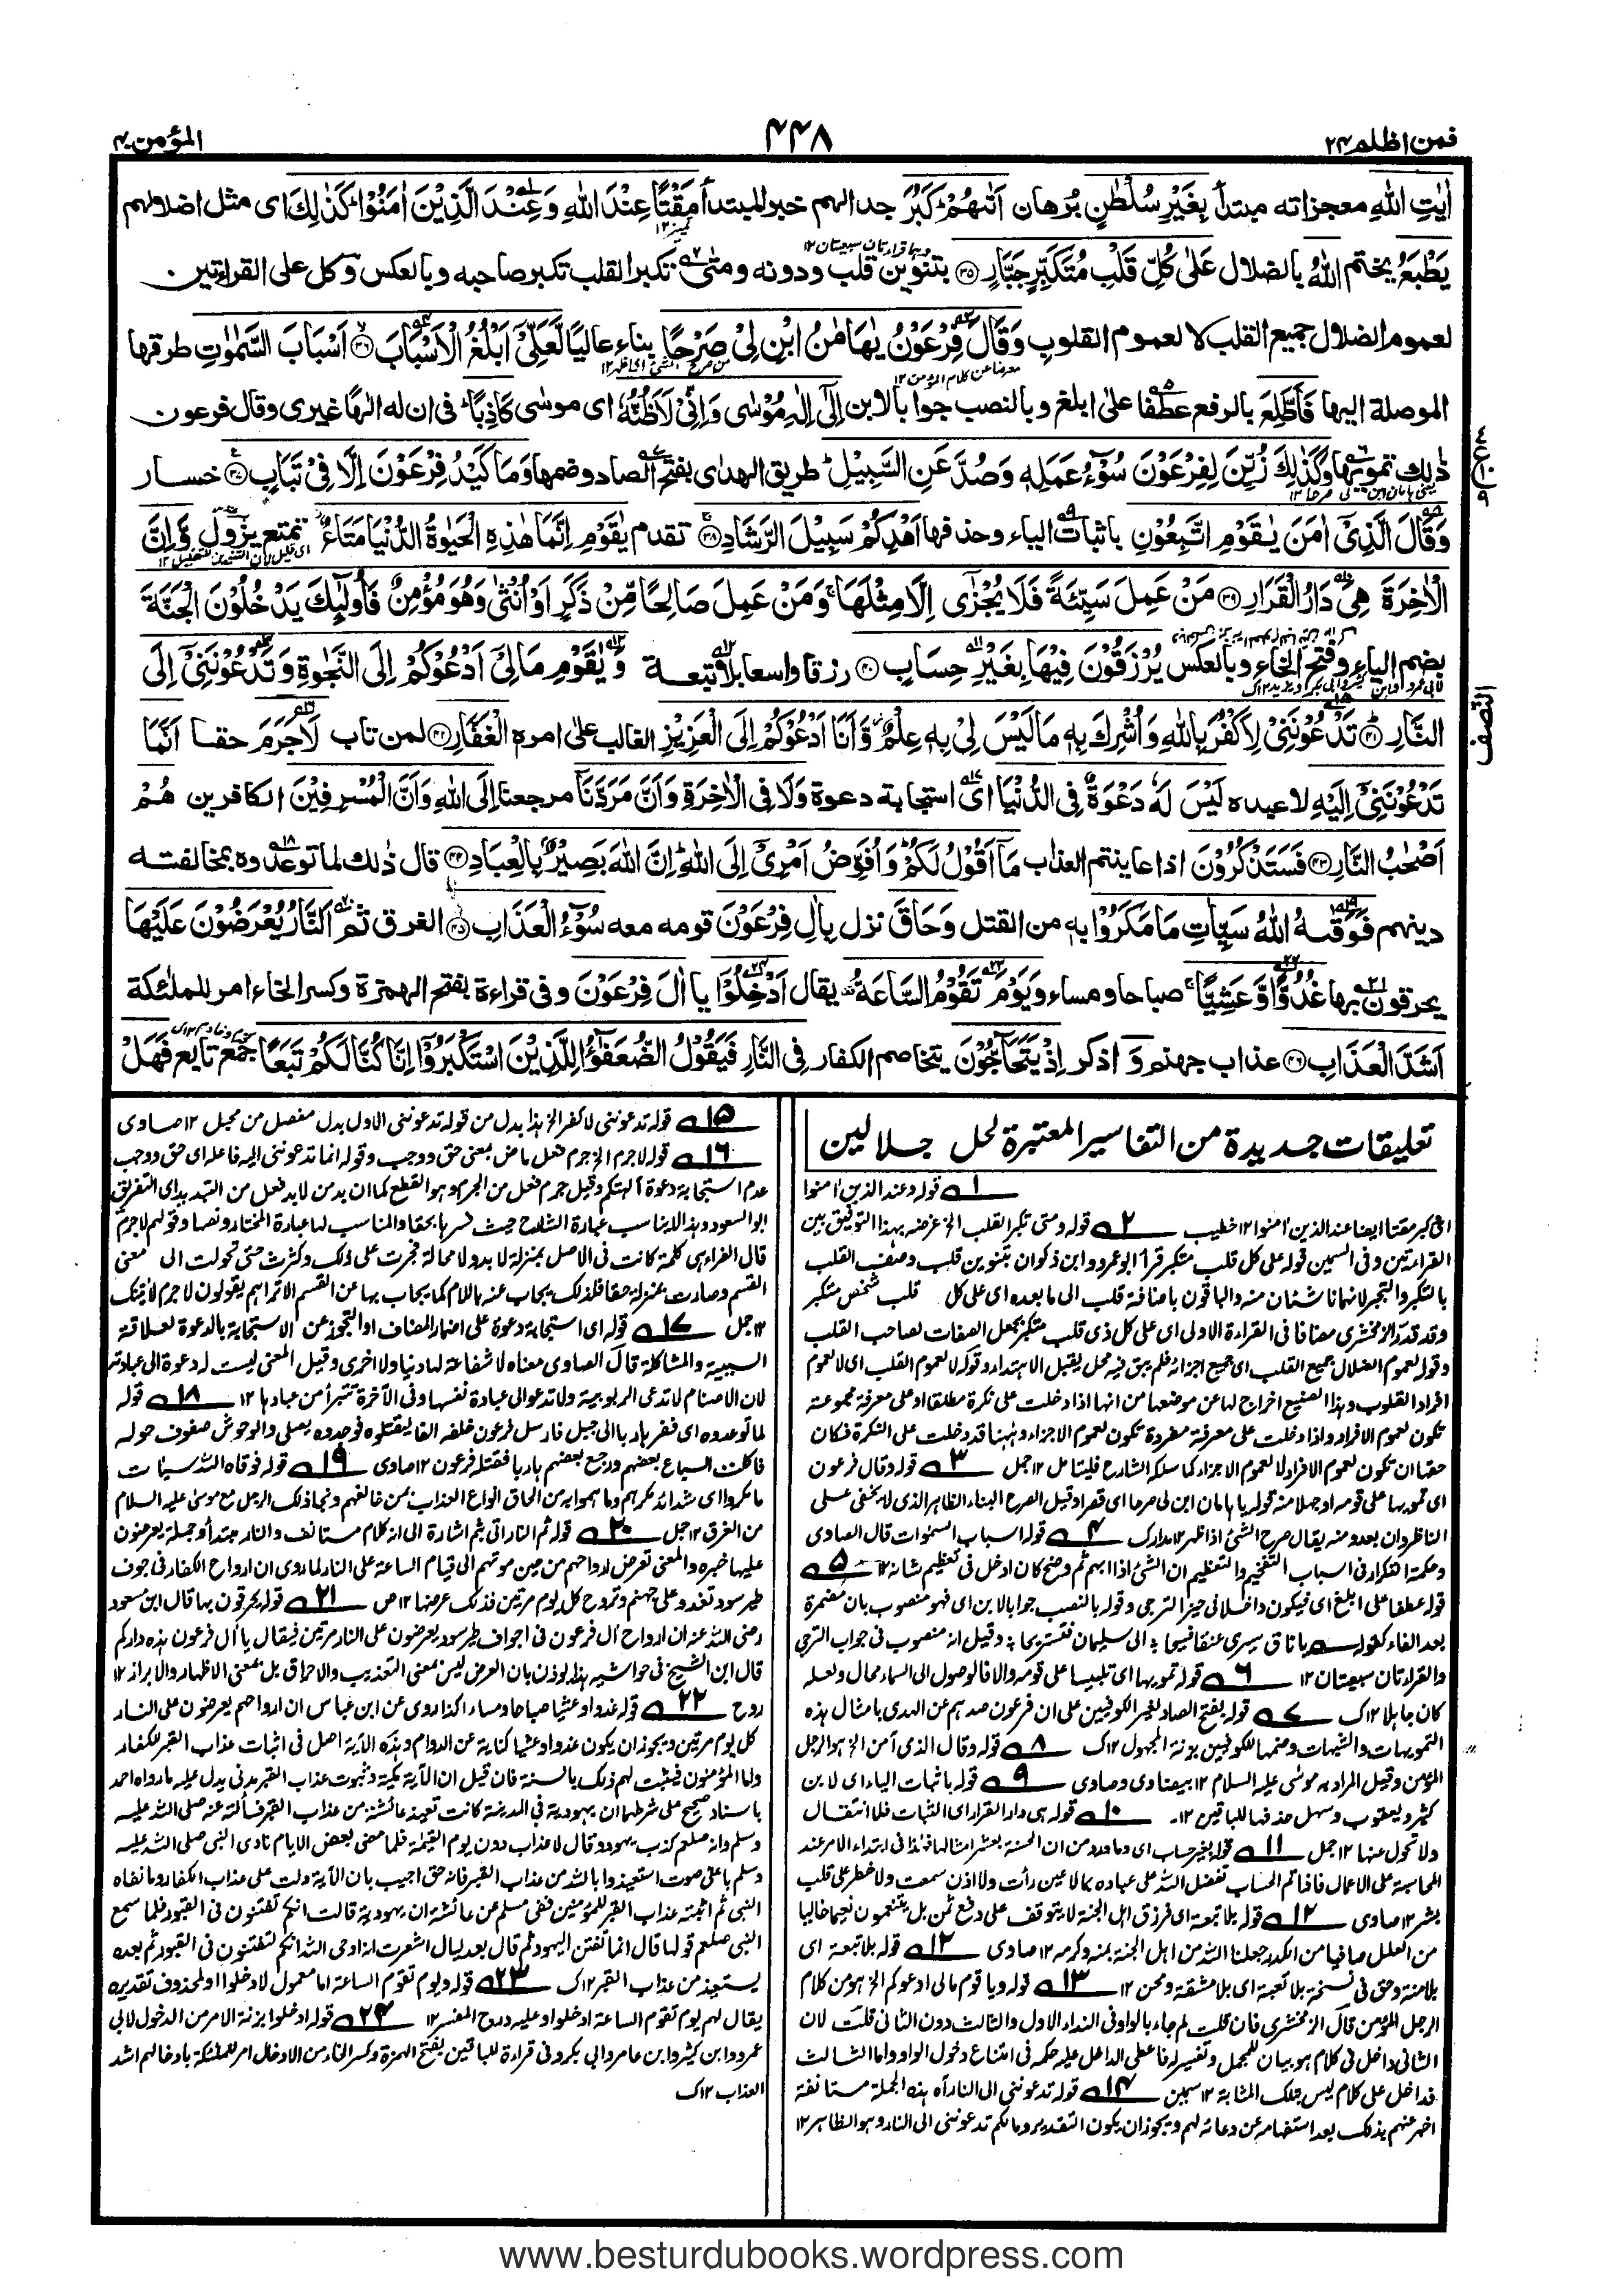 فمن اظلم ٢٤
٤٤٨
المؤمن ٤٠
اٰيٰتِ اللّٰهِ معجزاته مبتدأ بِغَيْرِ سُلْطٰنٍ بُرهان اَتٰىهُمْ كَبُرَ جدالهم خبر المبتدأ مَقْتًا عِنْدَ اللّٰهِ وَعِنْدَ الَّذِيْنَ اٰمَنُوْا كَذٰلِكَ اى مثل اضلالهم
يَطْبَعُ يختم اللّٰهُ بالضلال عَلٰى كُلِّ قَلْبِ مُتَكَبِّرٍ جَبَّارٍ ۝٣٥ بتنوين قلب ودونه ومتى تكبر القلب تكبر صاحبه وبالعكس وكل على القراءتين
لعموم الضلال جميع القلب لا لعموم القلوب وَقَالَ فِرْعَوْنُ يٰهَامٰنُ ابْنِ لِىْ صَرْحًا بناء عاليا لَّعَلِّىْ اَبْلُغُ الْاَسْبَابَ ۝٣٦ اَسْبَابَ السَّمٰوٰتِ طرقها
الموصلة اليها فَاَطَّلِعَ بالرفع عطفا على ابلغ وبالنصب جوابا لابن اِلٰى اِلٰهِ مُوْسٰى وَاِنِّىْ لَاَظُنُّهٗ اى موسى كَاذِبًا فى ان له الٰها غيرى وقال فرعون
ذلك تمويها وَكَذٰلِكَ زُيِّنَ لِفِرْعَوْنَ سُوْٓءُ عَمَلِهٖ وَصُدَّ عَنِ السَّبِيْلِ طريق الهدى بفتح الصاد وضمها وَمَا كَيْدُ فِرْعَوْنَ اِلَّا فِىْ تَبَابٍ ۝٣٧ خسار
وَقَالَ الَّذِىْٓ اٰمَنَ يٰقَوْمِ اتَّبِعُوْنِ باثبات الياء وحذفها اَهْدِكُمْ سَبِيْلَ الرَّشَادِ ۝٣٨ تقدم يٰقَوْمِ اِنَّمَا هٰذِهِ الْحَيٰوةُ الدُّنْيَا مَتَاعٌ تمتع يزول وَّاِنَّ
الْاٰخِرَةَ هِىَ دَارُ الْقَرَارِ ۝٣٩ مَنْ عَمِلَ سَيِّئَةً فَلَا يُجْزٰٓى اِلَّا مِثْلَهَا وَمَنْ عَمِلَ صَالِحًا مِّنْ ذَكَرٍ اَوْ اُنْثٰى وَهُوَ مُؤْمِنٌ فَاُولٰٓئِكَ يَدْخُلُوْنَ الْجَنَّةَ
بضم الياء وفتح الخاء وبالعكس يُرْزَقُوْنَ فِيْهَا بِغَيْرِ حِسَابٍ ۝٤٠ رزقا واسعا بلا تبعة وَيٰقَوْمِ مَالِىْٓ اَدْعُوْكُمْ اِلَى النَّجٰوةِ وَتَدْعُوْنَنِىْٓ اِلَى
النَّارِ ۝٤١ تَدْعُوْنَنِىْ لِاَكْفُرَ بِاللّٰهِ وَاُشْرِكَ بِهٖ مَا لَيْسَ لِىْ بِهٖ عِلْمٌ وَّاَنَا اَدْعُوْكُمْ اِلَى الْعَزِيْزِ الغالب على امره الْغَفَّارِ ۝٤٢ لمن تاب لَاجَرَمَ حقا اَنَّمَا
تَدْعُوْنَنِىْٓ اِلَيْهِ لاعبده لَيْسَ لَهٗ دَعْوَةٌ فِى الدُّنْيَا اى استجابة دعوة وَلَا فِى الْاٰخِرَةِ وَاَنَّ مَرَدَّنَآ مرجعنا اِلَى اللّٰهِ وَاَنَّ الْمُسْرِفِيْنَ الكافرين هُمْ
اَصْحٰبُ النَّارِ ۝٤٣ فَسَتَذْكُرُوْنَ اذا عاينتم العذاب مَآ اَقُوْلُ لَكُمْ وَاُفَوِّضُ اَمْرِىْٓ اِلَى اللّٰهِ اِنَّ اللّٰهَ بَصِيْرٌ بِالْعِبَادِ ۝٤٤ قال ذلك لما توعدوه بمخالفته
دينهم فَوَقٰىهُ اللّٰهُ سَيِّاٰتِ مَا مَكَرُوْا به من القتل وَحَاقَ نزل بِاٰلِ فِرْعَوْنَ قومه معه سُوْٓءُ الْعَذَابِ ۝٤٥ الغرق ثم اَلنَّارُ يُعْرَضُوْنَ عَلَيْهَا
يحرقون بها غُدُوًّا وَّعَشِيًّا صباحا ومساء وَيَوْمَ تَقُوْمُ السَّاعَةُ يقال اَدْخِلُوْٓا يا اٰلَ فِرْعَوْنَ وفى قراءة بفتح الهمزة وكسر الخاء امر للملئكة
اَشَدَّ الْعَذَابِ ۝٤٦ عذاب جهنم وَ اذكر اِذْ يَتَحَآجُّوْنَ يتخاصم الكفار فِى النَّارِ فَيَقُوْلُ الضُّعَفٰٓؤُا لِلَّذِيْنَ اسْتَكْبَرُوْٓا اِنَّا كُنَّا لَكُمْ تَبَعًا جمع تابع فَهَلْ
النصف
تعليقات جديدة من التفاسير المعتبرة لحل جلالين
١ قوله وعند الذين اٰمنوا
اى كبر مقتا ايضا عند الذين اٰمنوا ١٢ خطيب ٢ قوله ومتى تكبر القلب الخ غرضه بهذا التوفيق بين
القراءتين وفى السمين قوله على كل قلب متكبر قرأ ابو عمرو وابن ذكوان بتنوين قلب وصف القلب
بالتكبر والتجبر لانهما ناشئان منه والباقون باضافة قلب الى ما بعده اى على كل قلب شخص متكبر
وقد قدر الزمخشرى مضافا فى القراءة الاولى اى على كل ذى قلب متكبر بجعل الصفات لصاحب القلب
وقوله لعموم الضلال جميع القلب اى جميع اجزائه فلم يبق فيه محل يقبل الاهتداء وقوله لا لعموم القلب اى لا لعموم
افراد القلوب وهذا الصنيع اخراج لها عن موضعها من انها اذا دخلت على نكرة مطلقا او على معرفة مجموعة
تكون لعموم الافراد واذا دخلت على معرفة مفردة تكون لعموم الاجزاء وههنا قد دخلت على النكرة فكان
حقها ان تكون لعموم الافراد لا لعموم الاجزاء كما سلكه الشارح فليتامل ١٢ جمل ٣ قوله وقال فرعون
اى تمويها على قومه او جهلا منه قوله يا هامان ابن لى صرحا اى قصرا وقيل الصرح البناء الظاهر الذى لا يخفى على
الناظر وان بعد ومنه يقال صرح الشئ اذا ظهر ١٢ مدارك ٤ قوله اسباب السموات قال الصاوى
وحكمة التكرار فى اسباب التفخيم والتعظيم ان الشئ اذا ابهم ثم وضح كان ادخل فى تعظيم شانه ١٢ ٥
قوله عطفا على ابلغ اى فيكون داخلا فى حيز الترجى وقوله بالنصب جوابا لابن اى فهو منصوب بان مضمرة
بعد الفاء كقوله يا ناق سيرى عنقا فسيحا الى سليمان فنستريحا وقيل انه منصوب فى جواب الترجى
والقراءتان سبعيتان ١٢ ٦ قوله تمويها اى تلبيسا على قومه والا فالوصول الى السماء محال ولعله
كان جاهلا ١٢ ك ٧ قوله بفتح الصاد لغير الكوفيين على ان فرعون صدهم عن الهدى بامثال هذه
التمويهات والشبهات وضمها للكوفيين بزنة المجهول ١٢ ك ٨ قوله وقال الذى آمن الخ هو الرجل
المؤمن وقيل المراد به موسى عليه السلام ١٢ بيضاوى وصاوى ٩ قوله باثبات الياء اى لابن
كثير ويعقوب وسهل حذفها للباقين ١٢ ١٠ قوله هى دار القرار اى الثبات فلا انتقال
ولا تحول عنها ١٢ جمل ١١ قوله بغير حساب اى وما ورد من ان الحسنة بعشر امثالها فهذا فى ابتداء الامر عند
المحاسبة على الاعمال فاذا تم الحساب تفضل الله على عباده بما لا عين رأت ولا اذن سمعت ولا خطر على قلب
بشر ١٢ صاوى ١٢ قوله بلا تبعة اى فرزق اهل الجنة لا يتوقف على دفع ثمن بل يتنعمون نعيما خاليا
من العلل صافيا من الكدر جعلنا الله من اهل الجنة بمنه وكرمه ١٢ صاوى ١٢ قوله بلا تبعة اى
بلا منة وحق فى نسخة بلا تعبة اى بلا مشقة ومحن ١٢ ١٣ قوله ويا قوم مالى ادعوكم الخ هو من كلام
الرجل المؤمن قال الزمخشرى فان قلت لم جاء بالواو فى النداء الاول والثالث دون الثانى قلت لان
الثانى داخل فى كلام هو بيان للمجمل وتفسير له فاعطى الداخل عليه حكمه فى امتناع دخول الواو واما الثالث
فداخل على كلام ليس بتلك المثابة ١٢ سمين ١٤ قوله تدعوننى الى النار اٰه هذه الجملة مستانفة
اخبر عنهم بذلك بعد استفهامه عن دعائه لهم ويجوز ان يكون التقدير وما لكم تدعوننى الى النار وهو الظاهر ١٢
١٥ قوله تدعوننى لاكفر الخ هذا بدل من قوله تدعوننى الاول بدل مفصل من مجمل ١٢ صاوى
١٦ قوله لا جرم الخ جرم فعل ماض بمعنى حق ووجب وقوله انما تدعوننى اليه فاعله اى حق ووجب
عدم استجابة دعوة آلهتكم وقيل جرم فعل من الجرم وهو القطع كما ان بد من لا بد فعل من التبديد اى التفريق
ابو السعود وهذا لا يناسب عبارة الشارح حيث فسرها بحقا والمناسب لها عبارة المختار ونصها وقولهم لا جرم
قال الفراء هى كلمة كانت فى الاصل بمنزلة لا بد ولا محالة فجرت على ذلك وكثرت حتى تحولت الى معنى
القسم وصارت بمنزلة حقا فلذلك يجاب عنه باللام كما يجاب بها عن القسم الا تراهم يقولون لا جرم لآتينك
١٢ جمل ١٧ قوله اى استجابة دعوة على اضمار المضاف او التجوز عن الاستجابة بالدعوة لعلاقة
السببية والمشاكلة قال الصاوى معناه لا شفاعة لها دنيا ولا اخرى وقيل المعنى ليست له دعوة الى عبادته
لان الاصنام لا تدعى الربوبية ولا تدعو الى عبادة نفسها وفى الآخرة تتبرأ من عبادها ١٢ ١٨ قوله
لما توعدوه اى ففر هاربا الى جبل فارسل فرعون خلفه الفا ليقتلوه فوجدوه يصلى والوحوش صفوف حوله
فاكلت السباع بعضهم ورجع بعضهم هاربا فقتله فرعون ١٢ صاوى ١٩ قوله فوقاه الله سيئات
ما مكروا اى شدائد مكرهم وما هموا به من الحاق انواع العذاب بمن خالفهم ونجا ذلك الرجل مع موسى عليه السلام
من الغرق ١٢ جمل ٢٠ قوله ثم النار اتى بثم اشارة الى انه كلام مستانف والنار مبتدأ وجملة يعرضون
عليها خبره والمعنى تعرض ارواحهم من حين موتهم الى قيام الساعة على النار لما روى ان ارواح الكفار فى جوف
طير سود تغدو على جهنم وتروح كل يوم مرتين فذلك عرضها ١٢ ص ٢١ قوله يحرقون بها قال ابن مسعود
رضى الله عنه ان ارواح آل فرعون فى اجواف طير سود يعرضون على النار مرتين فيقال يا آل فرعون هذه داركم
قال ابن الشيخ فى حواشيه هذا يوذن بان العرض ليس بمعنى التعذيب والاحراق بل بمعنى الاظهار والابراز ١٢
روح ٢٢ قوله غدوا وعشيا صباحا ومساء كذا روى عن ابن عباس ان ارواحهم يعرضون على النار
كل يوم مرتين ويجوز ان يكون غدوا وعشيا كناية عن الدوام وهذه الآية اصل فى اثبات عذاب القبر للكفار
واما المؤمنون فيثبت لهم ذلك بالسنة فان قيل ان الآية مكية وثبوت عذاب القبر مدنى يدل عليه ما رواه احمد
باسناد صحيح على شرطهما ان يهودية فى المدينة كانت تعيذ عائشة من عذاب القبر فسألت عنه صلى الله عليه
وسلم وانه صلعم كذب يهود وقال لا عذاب دون يوم القيمة فلما مضى بعض الايام نادى النبى صلى الله عليه
وسلم باعلى صوت استعيذوا بالله من عذاب القبر فانه حق اجيب بان الآية دلت على عذاب الكفار وما نفاه
النبى ثم اثبته عذاب القبر للمؤمنين ففى مسلم عن عائشة ان يهودية قالت انكم تفتنون فى القبور فلما سمع
النبى صلعم قولها قال انما تفتن اليهود ثم قال بعد ليال اشعرت انه اوحى الله انكم لتفتنون فى القبور ثم بعده
يستعيذ من عذاب القبر ١٢ ك ٢٣ قوله ويوم تقوم الساعة اما معمول لادخلوا او لمحذوف تقديره
يقال لهم يوم تقوم الساعة ادخلوا وعليه درج المفسر ١٢ ٢٤ قوله ادخلوا بزنة الامر من الدخول لابى
عمرو وابن كثير وابن عامر وابى بكر وفى قراءة للباقين بفتح الهمزة وكسر الخاء من الادخال امر للملئكة بادخالهم اشد
العذاب ١٢ ك
www.besturdubooks.wordpress.com